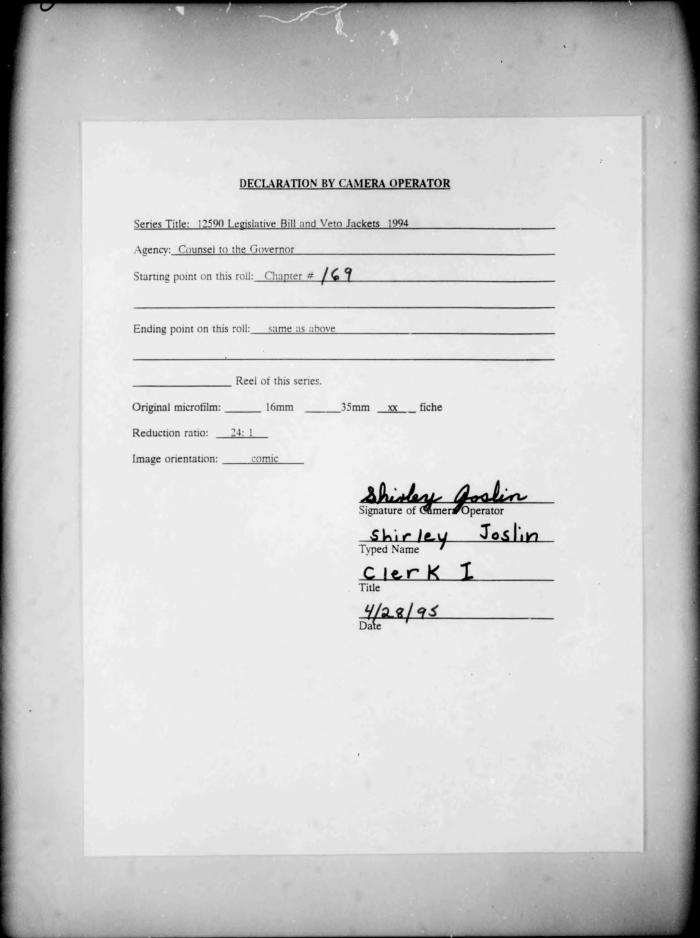 DECLARATION BY CAMERA OPERATOR
Series Title: 12590 Legislative Bill and Veto Jackets 1994
Agency: Counsel to the Governor
Starting point on this roll: Chapter # 169
Ending point on this roll: same as above
Reel of this series.
Original microfilm: 16mm 35mm xx fiche
Reduction ratio: 24: 1
Image orientation: comic
Shirley Joslin
Signature of Camera Operator
Shirley Joslin
Typed Name
Clerk I
Title
4/28/95
Date